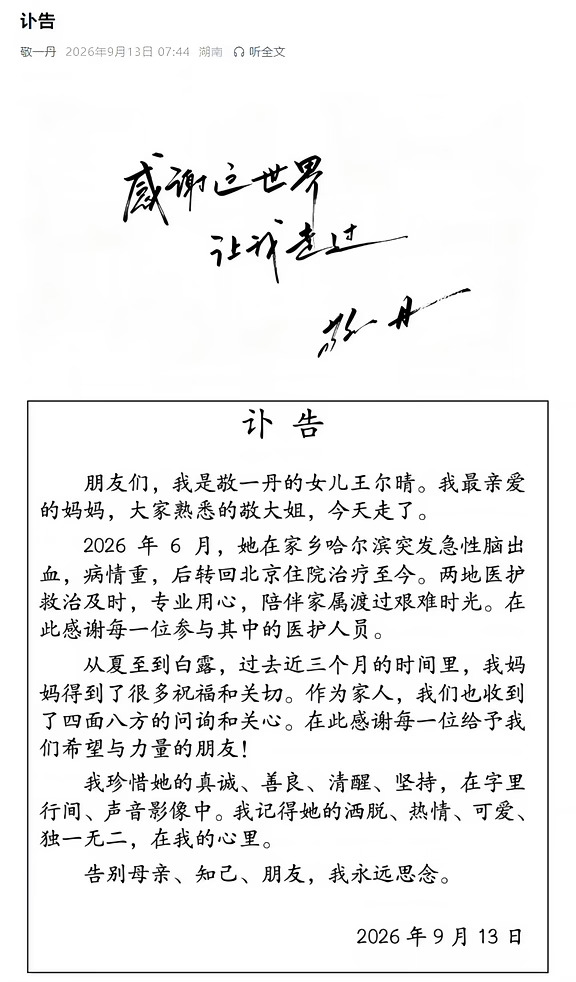 讣告
敬一丹 2026年9月13日 07:44 湖南 听全文
感谢这世界
让我走过
敬一丹
讣 告
朋友们，我是敬一丹的女儿王尔晴。我最亲爱
的妈妈，大家熟悉的敬大姐，今天走了。
2026 年 6 月，她在家乡哈尔滨突发急性脑出
血，病情重，后转回北京住院治疗至今。两地医护
救治及时，专业用心，陪伴家属渡过艰难时光。在
此感谢每一位参与其中的医护人员。
从夏至到白露，过去近三个月的时间里，我妈
妈得到了很多祝福和关切。作为家人，我们也收到
了四面八方的问询和关心。在此感谢每一位给予我
们希望与力量的朋友！
我珍惜她的真诚、善良、清醒、坚持，在字里
行间、声音影像中。我记得她的洒脱、热情、可爱、
独一无二，在我的心里。
告别母亲、知己、朋友，我永远思念。
2026 年 9 月 13 日